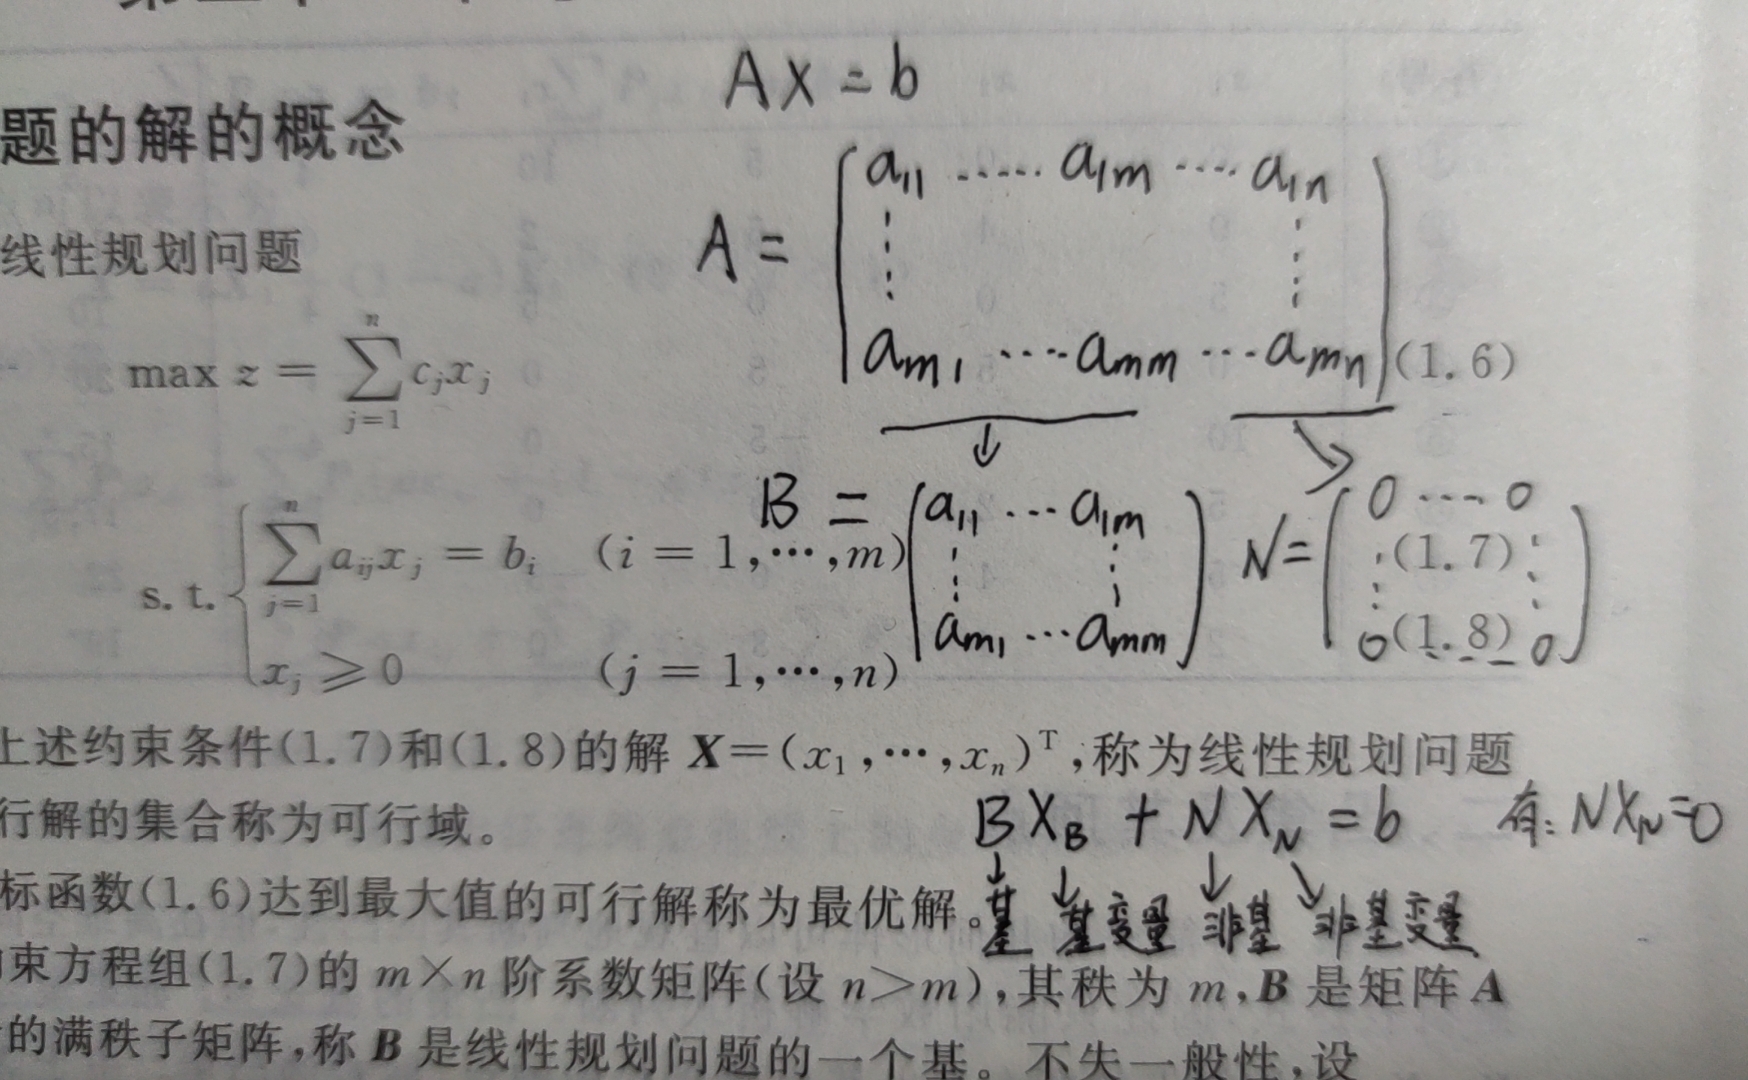 AX = b
题的解的概念
A = ( a₁₁ ····· a₁ₘ ···· a₁ₙ
⋮ ⋮
aₘ₁ ···· aₘₘ ··· aₘₙ )
线性规划问题
max z = ∑ⁿⱼ₌₁ cⱼxⱼ (1.6)
↓ ↘
B = ( a₁₁ ··· a₁ₘ
⋮ ⋮
aₘ₁ ··· aₘₘ )
N = ( 0 ···· 0
⋮ ⋮
0 ···· 0 )
s. t. { ∑ⁿⱼ₌₁ aᵢⱼxⱼ = bᵢ (i = 1,⋯,m) (1.7)
xⱼ ⩾ 0 (j = 1,⋯,n) (1.8)
上述约束条件(1.7)和(1.8)的解 X=(x₁,⋯,xₙ)ᵀ,称为线性规划问题
行解的集合称为可行域。
BX_B + NX_N = b 有: NX_N=0
↓ ↓ ↓ ↘
基 基变量 非基 非基变量
标函数(1.6)达到最大值的可行解称为最优解。
束方程组(1.7)的 m×n 阶系数矩阵(设 n>m),其秩为 m,B 是矩阵 A
的满秩子矩阵,称 B 是线性规划问题的一个基。不失一般性,设